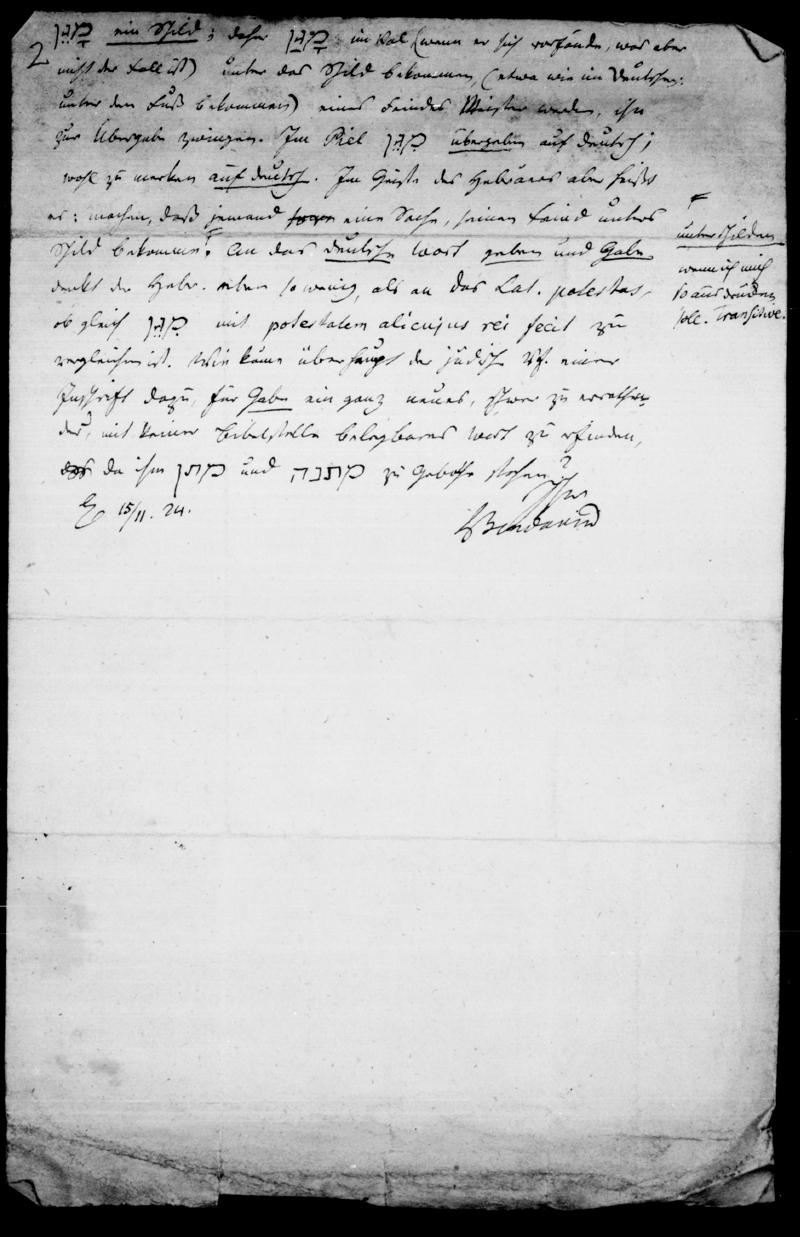 2
מָגֵן ein Schild; daher מָגַן im Kal (wenn er sich vorfände, was aber
nicht der Fall ist) unter das Schild bekommen (etwa wie im Deutschen:
unter den Fuß bekommen) eines Feindes Meister werden, ihn
zur Übergabe zwingen. Im Piel מִגֵּן übergeben auf deutsch;
wohl zu merken auf deutsch. Im Geiste des Hebräers aber heißt
es: machen, daß jemand eine Sache, seinen Feind unters
Schild bekomme. An das deutsche Wort geben und Gabe
denkt der Hebr. eben so wenig, als an das Lat. potestas,
ob gleich מִגֵּן mit potestatem alicujus rei fecit zu
vergleichen ist. Wie käme überhaupt der jüdische Vf. einer
Inschrift dazu, für Gabe ein ganz neues, schwer zu errathen-
des, mit keiner Bibelstelle belegbares Wort zu erfinden,
da ihm מתן und מתנה zu Gebothe stehen?
15/11. 24.
Ihr
LBendavid
unterschilden
wenn ich mich
so ausdrücken
soll. Transitive.